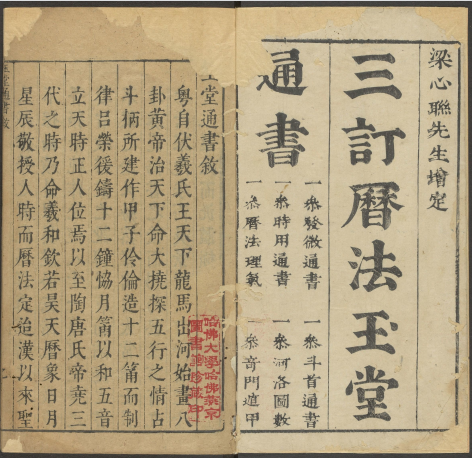 梁心聯先生增定
三訂曆法玉堂
通書
一叅發微通書
一叅斗首通書
一叅時用通書
一叅河洛圖數
一叅曆法理氣
一叅奇門遁甲
玉堂通書敘
粵自伏羲氏王天下龍馬出河始畫八
卦黃帝治天下命大撓探五行之情占
斗柄所建作甲子伶倫造十二筩而制
律呂榮援鑄十二鐘恊月筩以和五音
立天時正人位焉以至陶唐氏帝堯三
代之時乃命羲和欽若昊天曆象日月
星辰敬授人時而曆法定迨漢以來聖
哈佛大學哈佛燕京
圖書館珍藏印